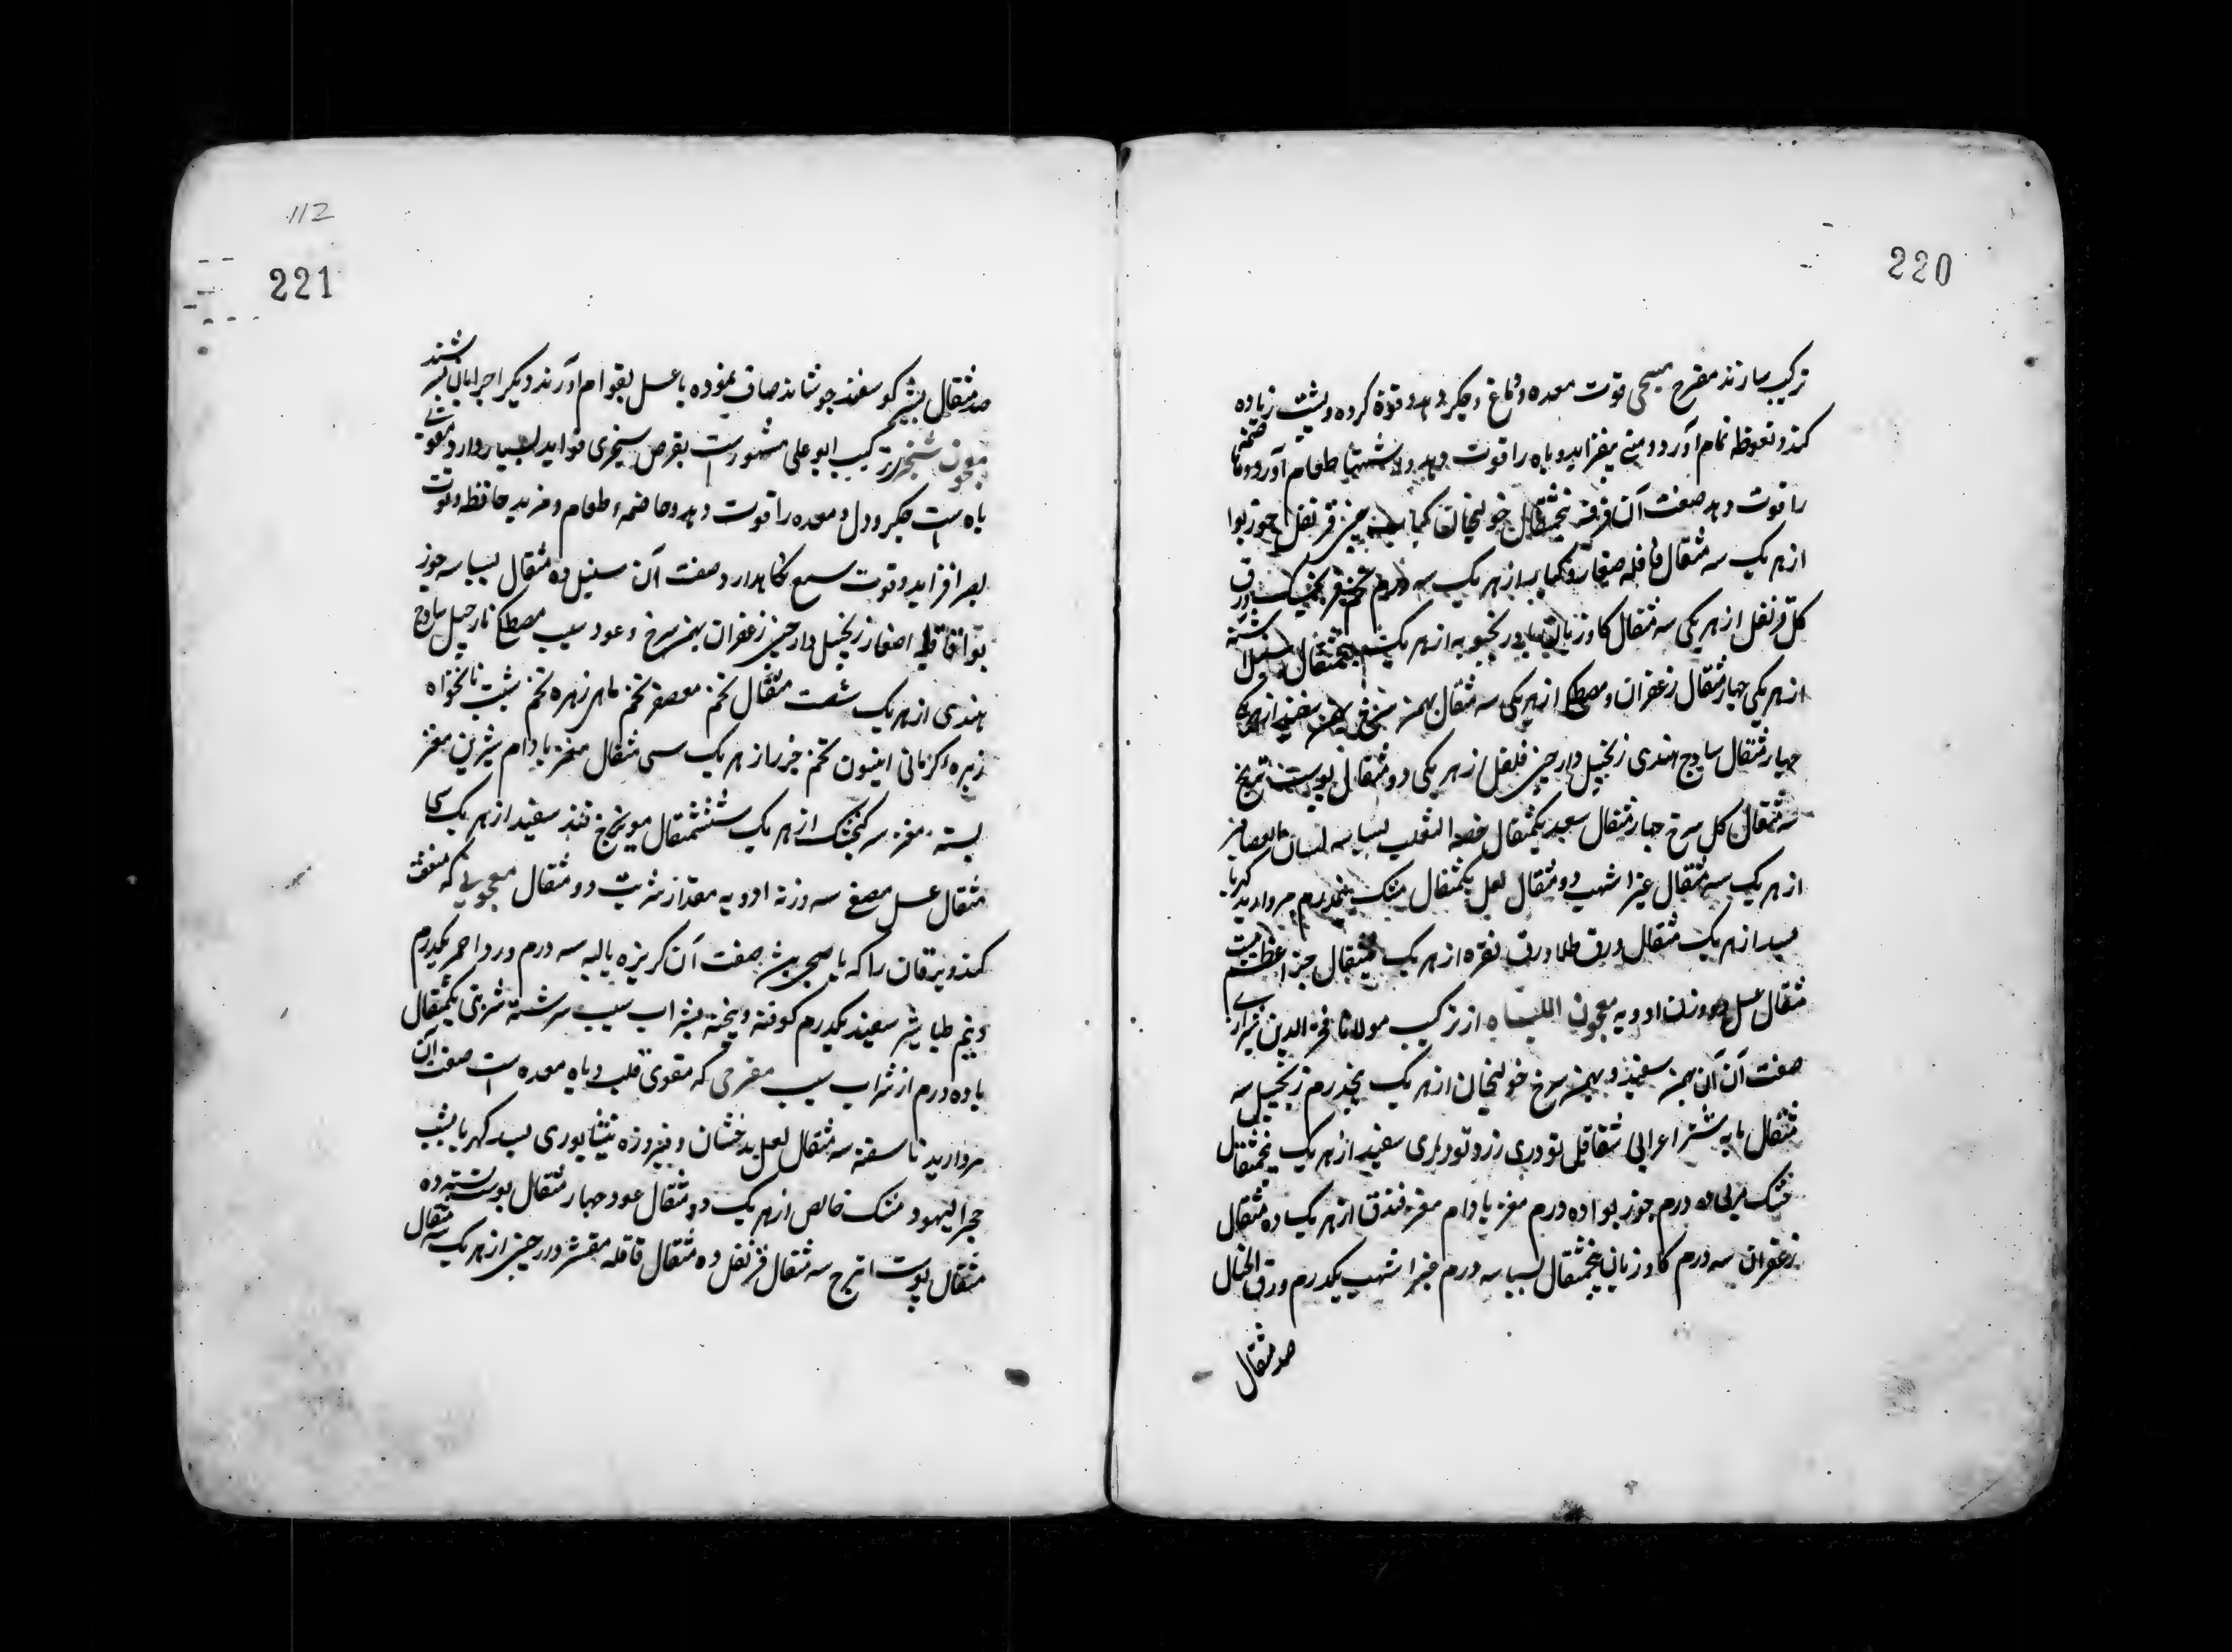 220
ترکیب سازند مفرح مسیحی قوت معده و دماغ و جگر دهد و قوة کرده و پشت زیاده
کند و نعوظ تمام آورد و منی بیفزاید و باه را قوت دهد و اشتها طعام آورد و هاضمه
را قوت دهد صفت آن قرفه پنجمثقال خولنجان کبابه چینی قرنفل جوزبوا
از هر یک سه مثقال قاقله صغار و کبار از هر یک سه درم تخم فرنجمشک ورق
کل قرنفل از هر یکی سه مثقال کاوزبان بادرنجبویه از هر یک پنجمثقال
از هر یکی چهار مثقال زعفران و مصطکی از هر یکی سه مثقال بهمن سرخ بهمن سفید از هر یک
چهار مثقال ساذج هندی زنجبیل دارچینی فلفل از هر یکی دو مثقال پوست ترنج
سه مثقال کل سرخ چهار مثقال سعد یکمثقال خصی الثعلب بسباسه لسان العصافیر
از هر یک سه مثقال عنبر اشهب دو مثقال لعل یکمثقال مشک نیمدرم مروارید کهربا
بسد از هر یک مثقال ورق طلا ورق نقره از هر یک مثقال جزء اعظم بیست
مثقال عسل دو وزن ادویه معجون اللباه از ترکیب مولانا فخر الدین شیرازی
صفت آن آن بهمن سفید و بهمن سرخ خولنجان از هر یک پنجدرم زنجبیل سه
مثقال مایه شتر اعرابی شقاقل تودری زرد تودری سفید از هر یک پنجمثقال
خشک مربی ده درم جوزبوا ده درم مغز بادام مغز فندق از هر یک ده مثقال
زعفران سه درم کاوزبان پنجمثقال بسباسه سه درم عنبر اشهب یکدرم ورق الخیال
صد مثقال
112
221
صد مثقال بشیر کوسفند جوشانند صاف نموده با عسل بقوام آورند و دیکر اجزا بان بسرشند
معجون شنجرز ترکیب ابو علی مشهورست بقرص سنجری فواید بسیار دارد مقوی
باه است جکر و دل و معده را قوت دهد و هاضمهٔ طعام و مزید حافظه و قوت
بصر افزاید و قوت سمع نکاهدارد صفت آن سنبل ده مثقال بسباسه جوز
بوا قاقله اصغار زنجبیل دارچینی زعفران بهمن سرخ و عود سیب مصطکی نارجیل ساذج
هندی از هر یک شصت مثقال تخم معصفر تخم ماهی زهره تخم شبت نانخواه
زیرهٔ کرمانی انیسون تخم جزر از هر یک سی مثقال مغز بادام شیرین مغز
پسته مغز سر کنجشک از هر یک ششمثقال مویزج قند سفید از هر یک سی
مثقال عسل مصفی سه وزنه ادویه مقدار شربت دو مثقال معجونی که منفعت
کند و یرقان را که با هیجی بیش صفت آن کربزه یالیه سه درم ورد احمر یکدرم
و نیم طباشیر سفید یکدرم کوفته و بیخته بشراب سیب سرشته شربتی یکمثقال
با ده درم از شراب سیب مفرحی که مقوی قلب و باه معده است صفت آن
مروارید ناسفته سه مثقال لعل بدخشان و فیروزه نیشابوری بسد کهربا یشب
حجر الیهود مشک خالص از هر یک دو مثقال عود چهار مثقال پوست پسته ده
مثقال پوست اترج سه مثقال قرنفل ده مثقال قاقله مقشر دارچینی از هر یک سه مثقال